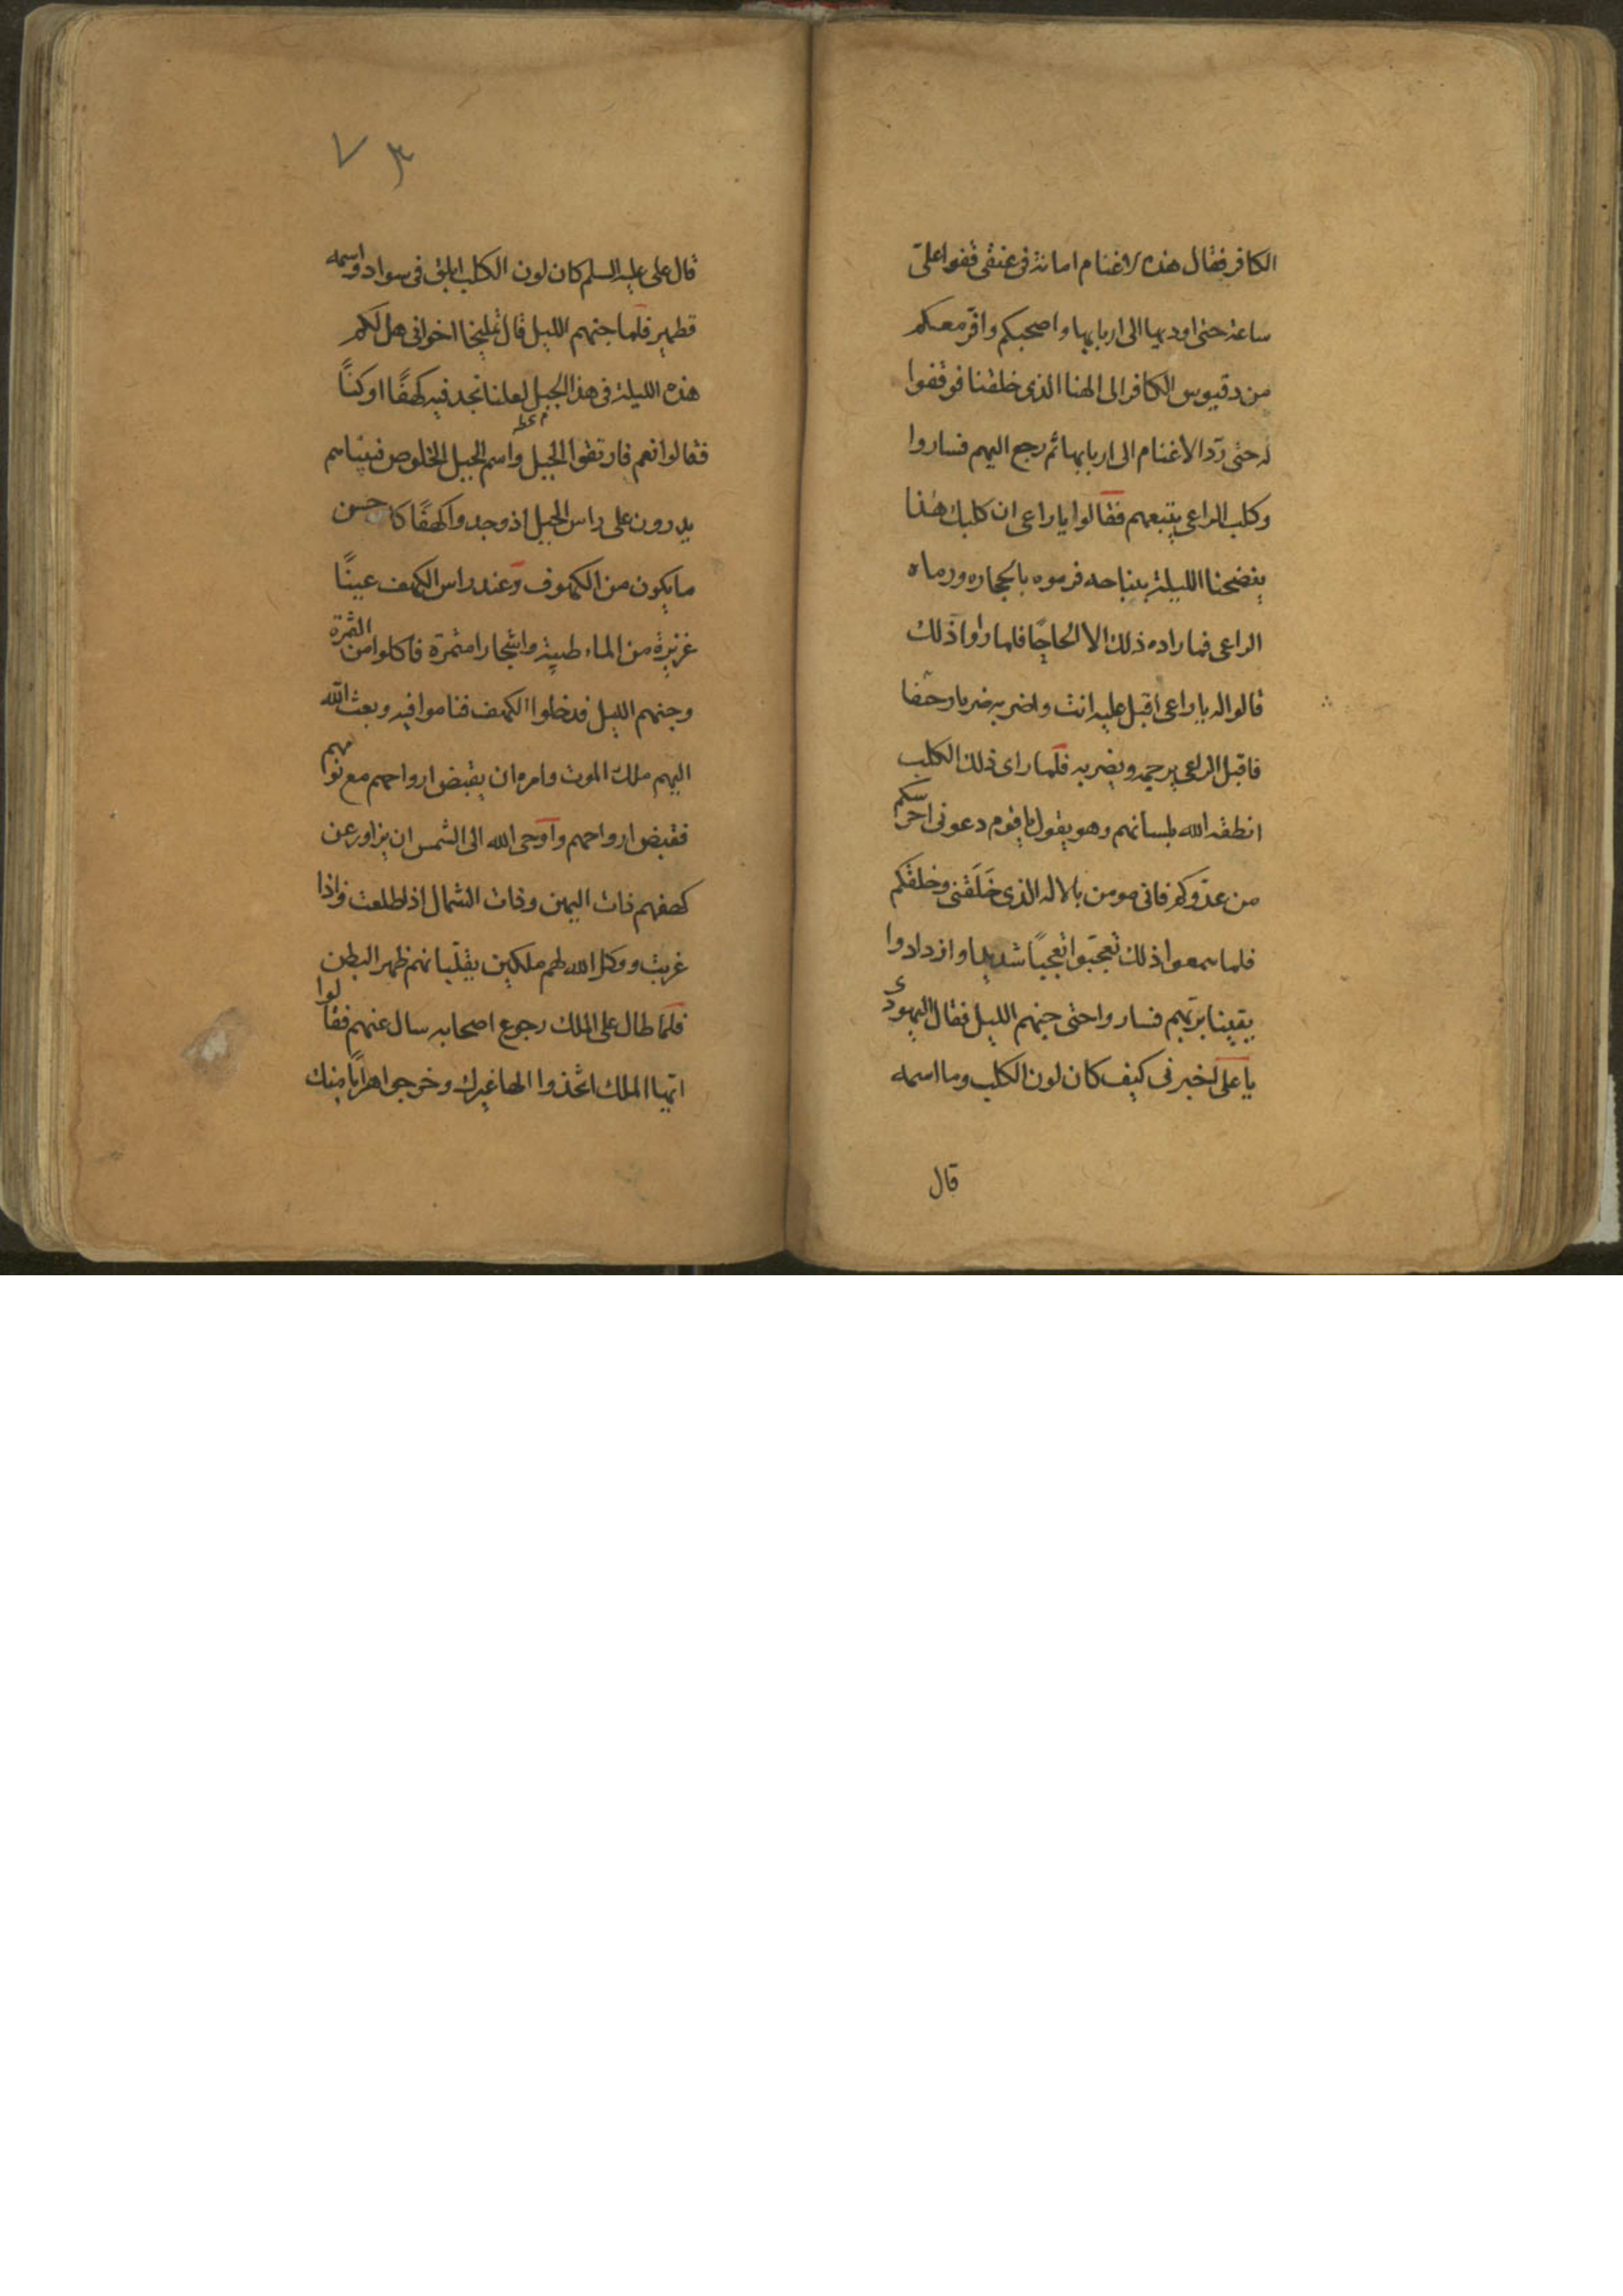 الكافر فقال هذه الاغنام امانة فى عنقى قفوا علىّ
ساعة حتى اوديها الى اربابها واصحبكم وافرّ معكم
من دقيوس الكافر الى الهنا الذى خلقنا فوقفوا
له حتى ردّ الاغنام الى اربابها ثم رجع اليهم فساروا
وكلب الراعى يتبعهم فقالوا يا راعى ان كلبك هذا
يفضحنا الليلة بنباحه فرموه بالحجاره ورماه
الراعى فما راده ذلك الا الحاجًا فلما راوا ذلك
قالوا له يا راعى اقبل عليه انت واضربه ضربا وحقا
فاقبل الراعى يرجمه ويضربه فلما راى ذلك الكلب
انطقه الله بلسانهم وهو يقول يا قوم دعونى احرسكم
من عدّوكم فانى مومن بالاله الذى خَلَقَنى وخلقكم
فلما سمعوا ذلك تعجّبوا تعجبًا شديدا وازدادوا
يقينا بربّهم فساروا حتى جنهم الليل فقال اليهودى
يا على اخبرنى كيف كان لون الكلب وما اسمه
قال
٧٣
قال على عليه السلم كان لون الكلب ابلق فى سواد واسمه
قطمير فلما جنهم الليل قال تمليخا اخوانى هل لكم
هذه الليلة فى هذا الجبل لعلنا نجد فيه كهفًا اوكنًّا
فقالوا نعم فارتقوا الجبل واسم الجبل الخلوص فبينا هم
يدرون على راس الجبل اذ وجدوا كهفًا كا حسن
ما يكون من الكهوف وعند راس الكهف عينًا
غزيرة من الماء طيبة واشجارا مثمرة فاكلوا من الثمرة
وجنهم الليل فدخلوا الكهف فناموا فيه وبعث الله
اليهم ملك الموت وامره ان يقبض ارواحهم مع نوامهم
فقبض ارواحهم واوحى الله الى الشمس ان يزاور عن
كهفهم ذات اليمين وذات الشمال اذ اطلعت واذا
غربت ووكل الله لهم ملكين يقلّبانهم ظهر البطن
فلما طال على الملك رجوع اصحابه سال عنهم فقالوا
ايّها الملك اتخذوا الها غيرك وخرجوا هرابًا منك